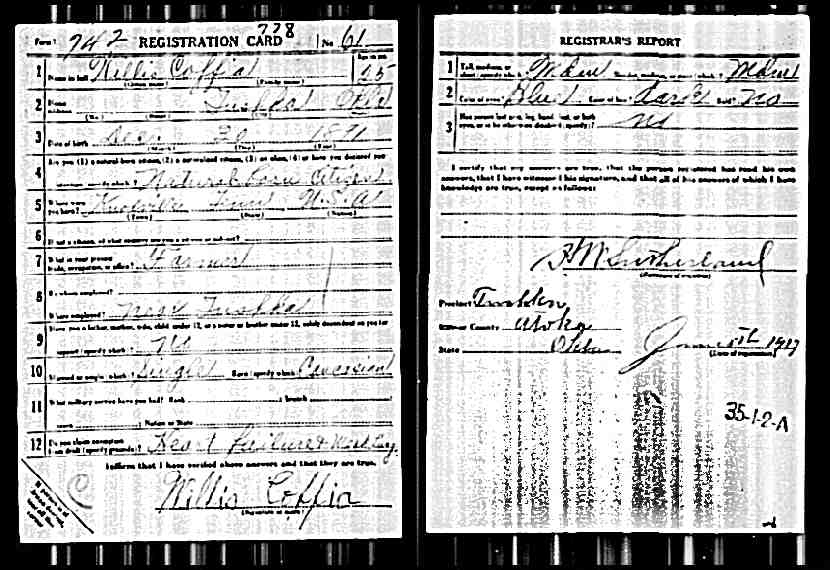 Form 1 742 REGISTRATION CARD 728 No 61
1 Name in full Willis Coffia Age in yrs. 25
(Given name) (Family name)
2 Home address Tushka Okla
(No.) (Street) (City) (State)
3 Date of birth 30 1891
(Month) (Day) (Year)
4 Are you (1) a natural-born citizen, (2) a naturalized citizen, (3) an alien, (4) or have you declared your
intention (specify which)? Natural Born Citizen
5 Where were you born? Knoxville Tenn U.S.A
(Town) (State) (Nation)
6 If not a citizen, of what country are you a citizen or subject?
7 What is your present trade, occupation, or office? Farmer
8 By whom employed?
Where employed? Near Tushka
9 Have you a father, mother, wife, child under 12, or a sister or brother under 12, solely dependent on you for
support (specify which)? No
10 Married or single (which)? Single Race (specify which)? Caucasian
11 What military service have you had? Rank ; branch
years ; Nation or State
12 Do you claim exemption from draft (specify grounds)? Heart failure &
I affirm that I have verified above answers and that they are true.
Willis Coffia
(Signature or mark)
REGISTRAR'S REPORT
1 Tall, medium, or short (specify which)? Medium Slender, medium, or stout (which)? Medium
2 Color of eyes? Blue Color of hair? Dark Bald? No
3 Has person lost arm, leg, hand, foot, or both eyes, or is he otherwise disabled (specify)? No
I certify that my answers are true, that the person registered has read his own
answers, that I have witnessed his signature, and that all of his answers of which I have
knowledge are true, except as follows:
Sutherland
(Signature of registrar)
Precinct Tushka
City or County Atoka
State Okla June 5th 1917
(Date of registration)
35-1-2-A